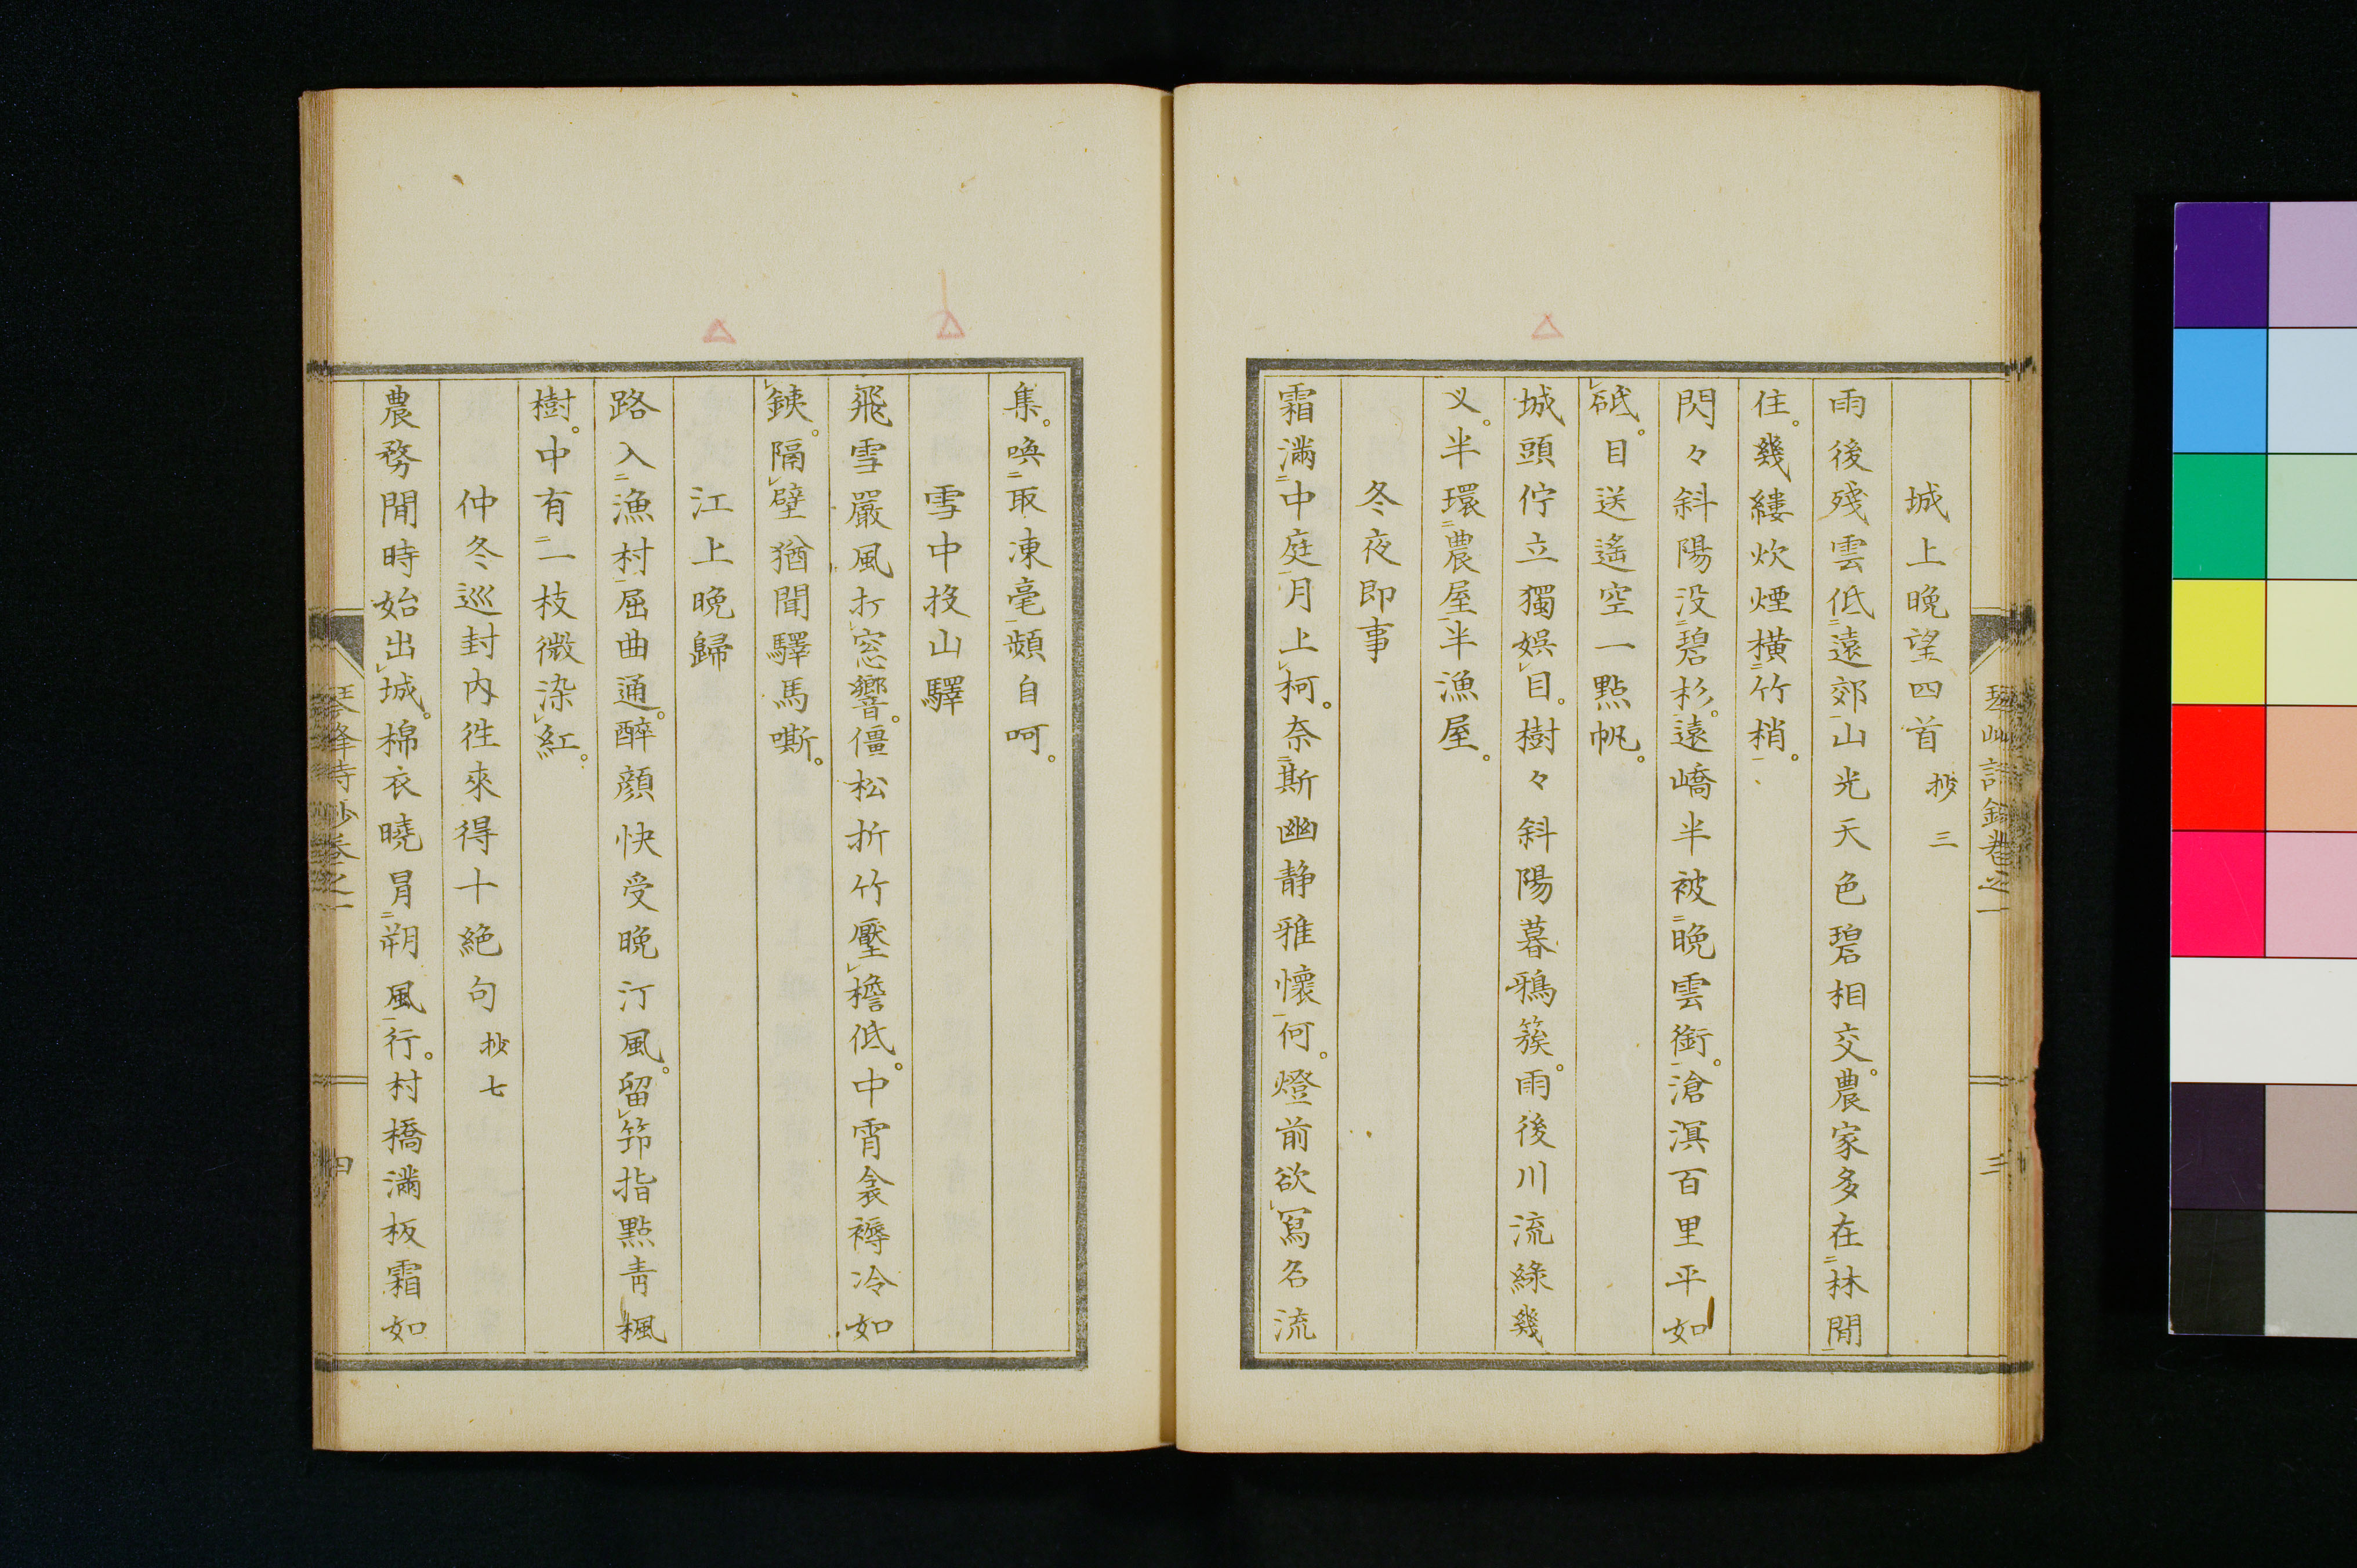 城上晚望四首 抄三
雨後殘雲低㆓遠郊㆒山光天色碧相交。農家多在㆓林間㆒
住。幾縷炊煙橫㆓竹梢㆒。
閃々斜陽没㆓碧杉㆒。遠嶠半被㆓晚雲銜㆒。滄溟百里平如
㆑砥。目送遙空一點帆。
城頭佇立獨娯㆑目。樹々斜陽暮鴉簇。雨後川流綠幾
叉。半環㆓農屋㆒半漁屋。
冬夜即事
霜滿㆓中庭㆒月上㆑柯。奈㆓斯幽静雅懷㆒何。燈前欲㆑寫名流
集。喚㆓取凍毫㆒頻自呵。
雪中投山驛
飛雪嚴風打㆑窓響。僵松折竹壓㆑檐低。中宵衾褥冷如
㆑鐵。隔㆑壁猶聞驛馬嘶。
江上晚歸
路入㆓漁村㆒屈曲通。醉顔快受晚汀風。留㆑笻指點青楓
樹。中有㆓一枝微染㆑紅。
仲冬巡封内徃來得十絶句 抄七
農務閒時始出㆑城。棉衣曉冒㆓朔風㆒行。村橋滿板霜如
琴峰詩鈔卷之一
四